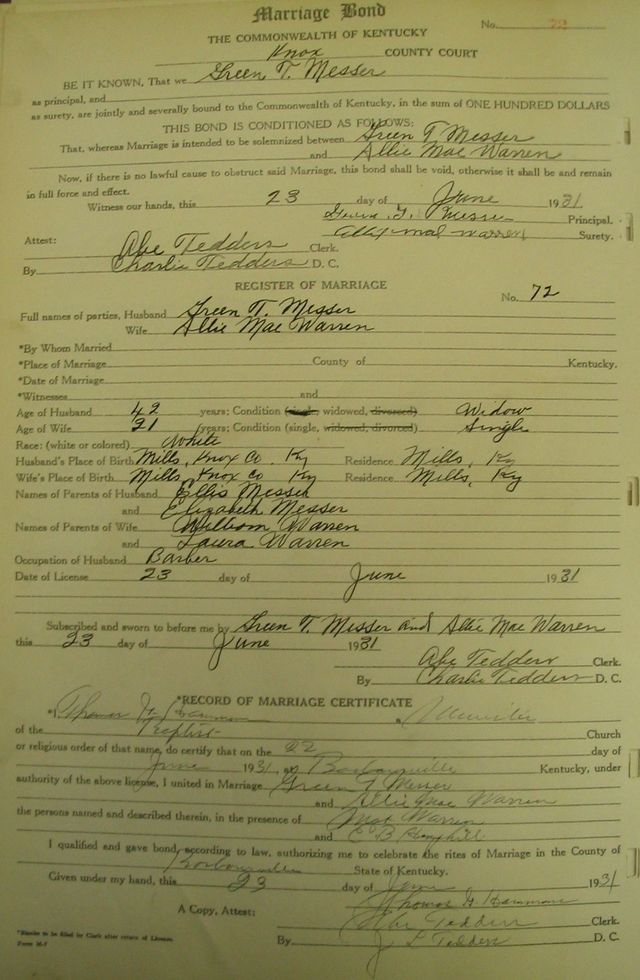 Marriage Bond
No.
THE COMMONWEALTH OF KENTUCKY
Knox COUNTY COURT
BE IT KNOWN, That we Green T. Messer
as principal, and
as surety, are jointly and severally bound to the Commonwealth of Kentucky, in the sum of ONE HUNDRED DOLLARS
THIS BOND IS CONDITIONED AS FOLLOWS:
That, whereas Marriage is intended to be solemnized between Green T Messer
and Allie Mae Warren
Now, if there is no lawful cause to obstruct said Marriage, this bond shall be void, otherwise it shall be and remain
in full force and effect.
Witness our hands, this 23 day of June 1931
Principal.
Attest: Allie Mae Warren Surety.
Abe Tedders Clerk.
By Charlie Tedders D. C.
REGISTER OF MARRIAGE
No. 72
Full names of parties, Husband Green T. Messer
Wife Allie Mae Warren
*By Whom Married
*Place of Marriage County of Kentucky.
*Date of Marriage
*Witnesses and
Age of Husband 42 years; Condition (single, widowed, divorced) Widow
Age of Wife 21 years; Condition (single, widowed, divorced) Single
Race: (white or colored) White
Husband's Place of Birth Mills, Knox Co. Ky Residence Mills, Ky
Wife's Place of Birth Mills, Knox Co Ky Residence Mills, Ky
Names of Parents of Husband Ellis Messer
and Elizabeth Messer
Names of Parents of Wife William Warren
and Laura Warren
Occupation of Husband Barber
Date of License 23 day of June 1931
Subscribed and sworn to before me by Green T. Messer and Allie Mae Warren
this 23 day of June 1931
Abe Tedders Clerk.
By Charlie Tedders D. C.
*RECORD OF MARRIAGE CERTIFICATE
*I, Thomas a Minister
of the Baptist Church
or religious order of that name, do certify that on the 22 day of
June 1931, at Barbourville Kentucky, under
authority of the above license, I united in Marriage Green T Messer
and Allie Mae Warren
the persons named and described therein, in the presence of Warren
and E B
I qualified and gave bond, according to law, authorizing me to celebrate the rites of Marriage in the County of
Barbourville State of Kentucky.
Given under my hand, this 23 day of June 1931
Thomas
A Copy, Attest: Abe Tedders Clerk.
By J Tedders D. C.
*Blanks to be filled by Clerk after return of License.